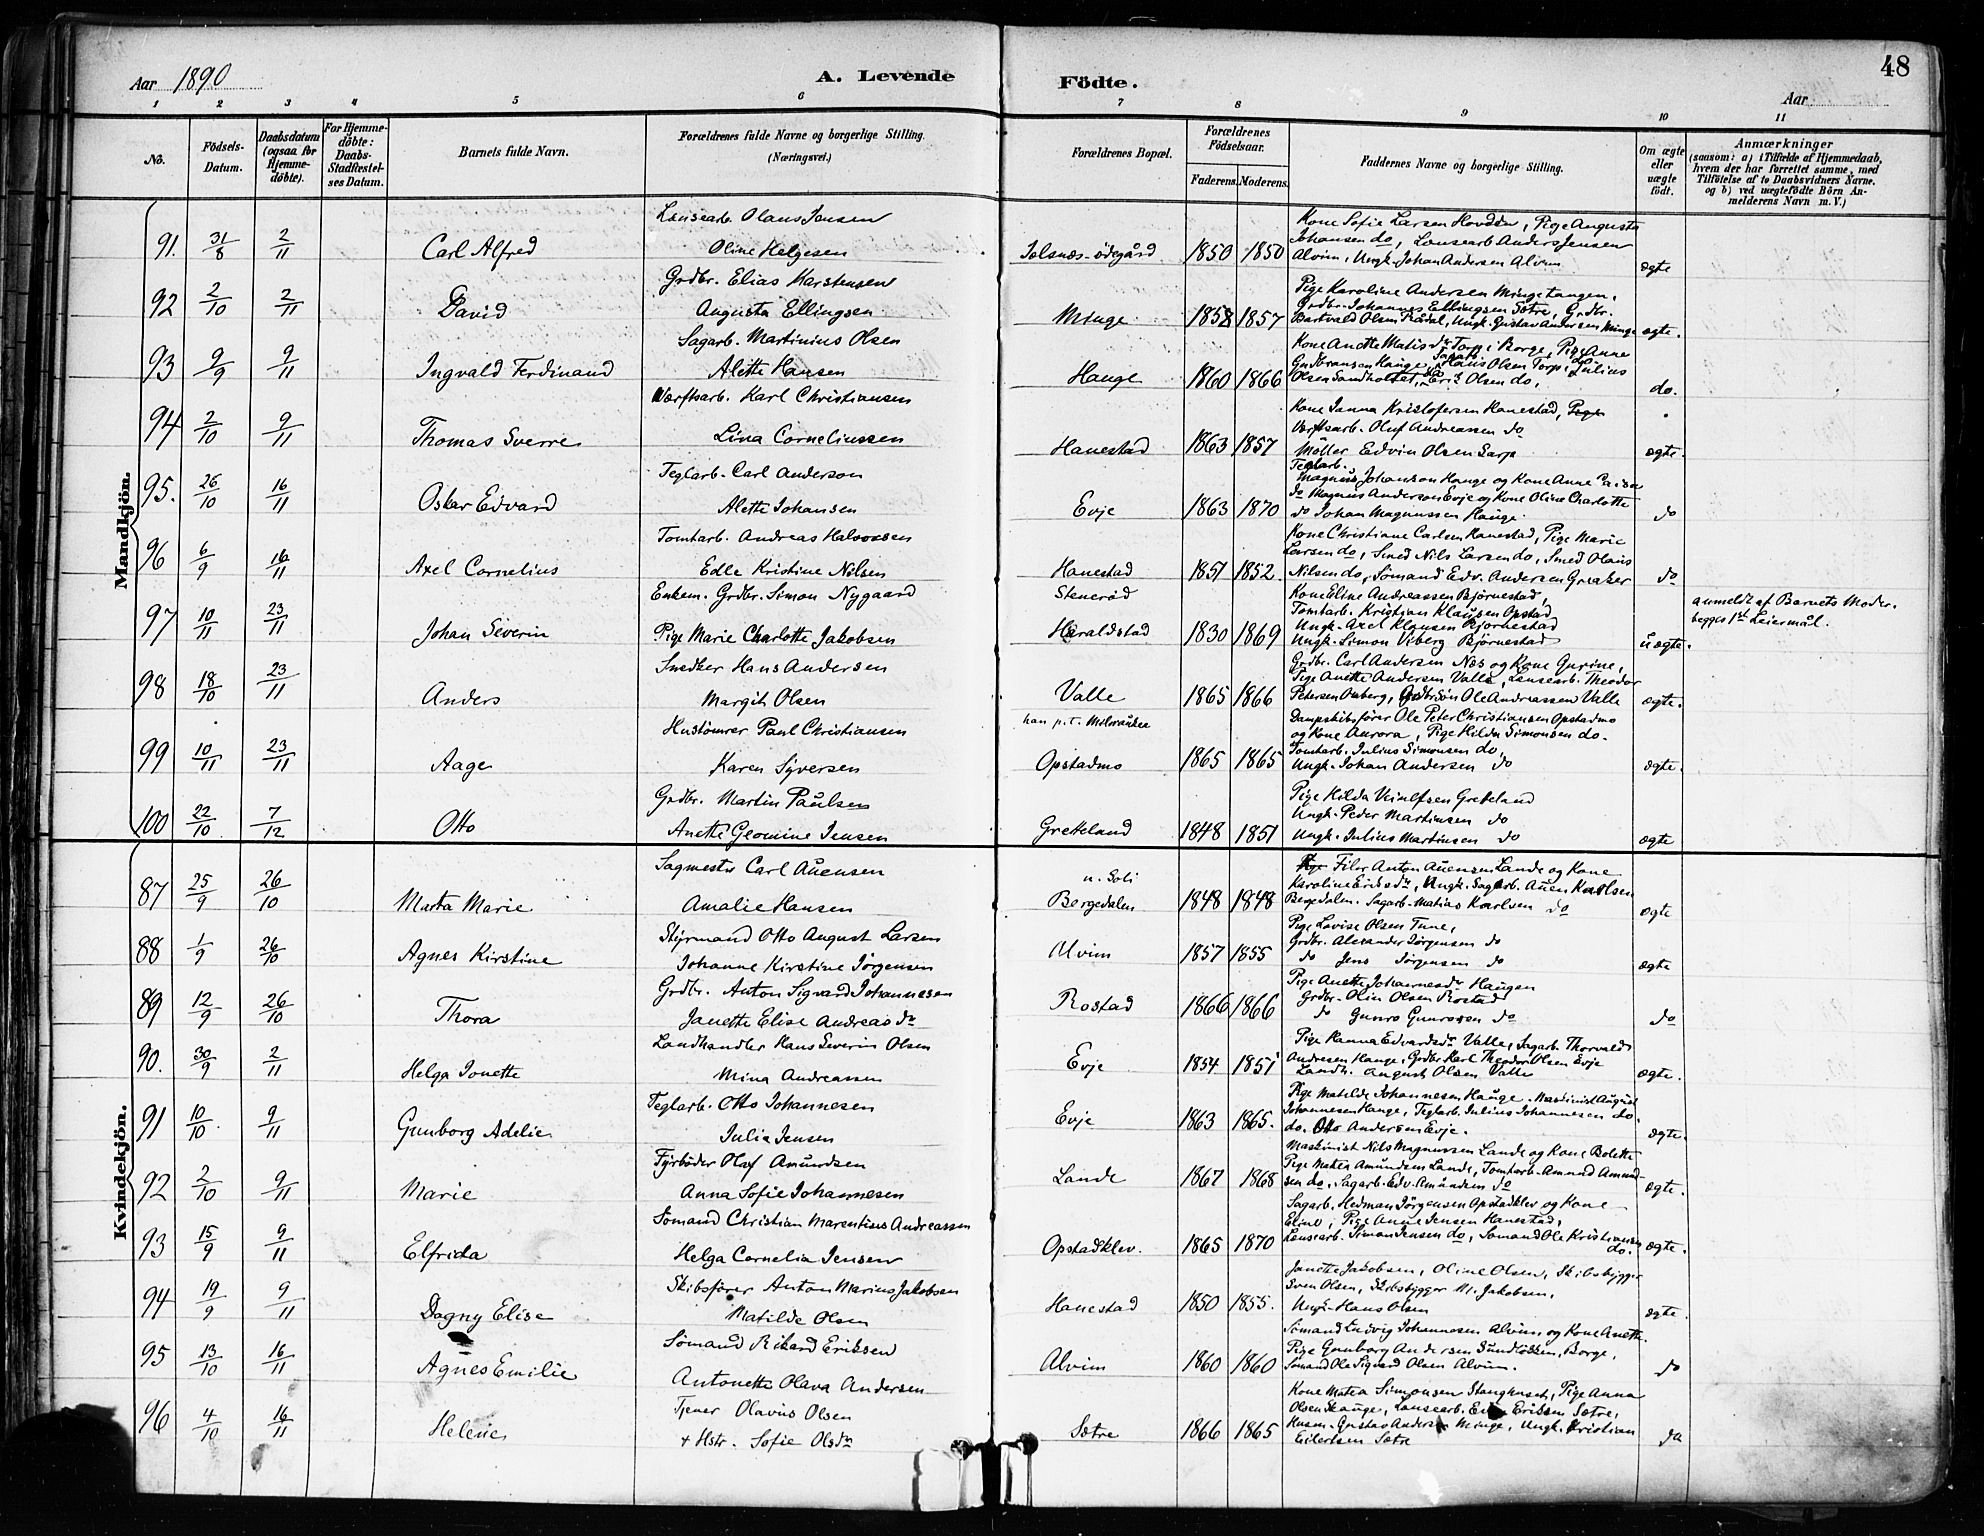 48
Aar 1890
A. Levende Födte.
Aar
1 2 3 4 5 6 7 8 9 10 11
No.
Födsels-Datum.
Daabsdatum (ogsaa for Hjemme-döbte).
For Hjemme-döbte: Daabs-Stadfæstel-ses Datum.
Barnets fulde Navn.
Forældrenes fulde Navne og borgerlige Stilling.
(Næringsvei.)
Forældrenes Bopæl.
Forældrenes Födselsaar.
Faderens. Moderens.
Faddernes Navne og borgerlige Stilling.
Om ægte eller uægte födt.
Anmærkninger
(saasom: a) i Tilfælde af Hjemmedaab,
hvem der har forrettet samme, med
Tilföielse af to Daabsvidners Navne.
og b) ved uægtefödte Börn An-
melderens Navn m. V.)
Mandkjön.
91. 31/8 2/11 Carl Alfred
Lænsearb. Olaus Jensen
Oline Helgesen
1850 1850
Kone Sofie Larsen, Pige Augusta
Johansen do, Lænsearb Anders Jensen
Alvim, Ungk. Johan Andersen Alvim
ægte
92 2/10 2/11 David
Grdbr. Elias Karstensen
Augusta Ellingsen
Minge 1858 1857
Pige Karoline Andersen Mingetangen,
Grdbr. Johannes Ellingsen Sötre, Grdbr.
Bartvald Olsen Rödal, Ungk. Gustav Andersen Minge
ægte.
93 9/9 9/11 Ingvald Ferdinand
Sagarb. Martinius Olsen
Alette Hansen
Hauge 1860 1866
Kone Anette Matisdr Torp, Borge, Pige Anne
Gudbransen Hauge, Sagarb. Hans Olsen Torp, Julius
Olsen Sandholtet, Erik Olsen do,
do.
94 2/10 9/11 Thomas Sverre
Værftsarb. Karl Christiansen
Lina Corneliussen
Hanestad 1863 1857
Kone Janna Kristofersen Hanestad, Pige
Værftsarb. Oluf Andreassen do
Möller Edvin Olsen Sarp
ægte.
95. 26/10 16/11 Oskar Edvard
Teglarb. Carl Anderson
Alette Johansen
Evje 1863 1870
Teglarb.
Magnus Johanson Hauge og Kone Anne
do Magnus Anderson Evje og Kone Oline Charlotte
do Johan Magnussen Hauge.
do
96 6/9 16/11 Axel Cornelius
Tomtarb. Andreas Halvorsen
Edle Kristine Nilsen
Hanestad 1851 1852.
Kone Christiane Carlsen Hanestad, Pige Marie
Larsen do, Smed Nils Larsen do, Smed Olaus
Nilsen do, Sömand Edv. Andersen Greaker
do
97 10/11 23/11 Johan Severin
Enkem. Grdbr. Simon Nygaard
Pige Marie Charlotte Jakobsen
Steneröd
Haraldstad 1830 1869
Kone Eline Andreassen Björnestad,
Tomtarb. Kristian Klausen Opstad
Ungk. Axel Klausen Björnestad
Ungk. Simon Viberg Björnestad
uægte.
anmeldt af Barnets Moder.
begges 1ste Leiermål.
98 18/10 23/11 Anders
Snedker Hans Andersen
Margit Olsen
Valle 1865 1866
Grdbr. Carl Andersen Næs og Kone Gurine,
Pige Anette Andersen Valle, Lænsearb. Theodor
Petersen Aaberg, Grdbrsön Ole Andreassen Valle
ægte.
99 10/11 23/11 Aage
Hustömrer Paul Christiansen
Karen Syversen
han p.t. Milwaukee
Opstadmo 1865 1865
Dampskibsförer Ole Peter Christiansen Opstadmo
og Kone Aurora, Pige Hilda Simonsen do.
Tomtarb. Julius Simonsen do,
Ungk. Johan Andersen do
ægte.
100 22/10 7/12 Otto
Grdbr. Martin Paulsen
Anette Geomine Jensen
Gretteland 1848 1851
Pige Hilda Gretteland
Ungk. Peder Martinsen do
Ungk. Julius Martinsen do
ægte
Kvindekjön.
87 25/9 26/10 Marta Marie
Sagmester Carl Auensen
Amalie Hansen
u. Soli
Borgedalen 1848 1848
Filer Anton Auensen Lande og Kone
Karoline Eriksdr, Ungk. Sagarb. Auen Karlsen
Borgedalen. Sagarb. Matias Karlsen do
ægte
88 1/9 26/10 Agnes Kirstine
Styrmand Otto August Larsen
Johanne Kirstine Jörgensen
Alvim 1857 1855
Pige Lovise Olsen Tune,
Grdbr. Alexander Jörgensen do
do Jens Jörgensen do
ægte
89 12/9 26/10 Thora
Grdbr. Anton Sigvard Johannesen
Janette Elise Andreasdr
Rostad 1866 1866
Pige Anette Johannesdr Haugen
Grdbr. Olin Olsen Rostad
do Gunro Gunrosen do
do
90. 30/9 2/11 Helga Jonette
Landhandler Hans Severin Olsen
Mina Andreassen
Evje 1854 1851
Pige Hanna Edvardsdr Valle, Sagarb. Thorvald
Andresen Hauge, Grdbr Karl Theodor Olsen Evje
Landh. August Olsen Valle
ægte.
91 10/10 9/11 Gunborg Adelie
Teglarb. Otto Johannesen
Julia Jensen
Evje 1863 1865.
Pige Matilde Johannesen Hauge. Maskinist August
Johannesen Hauge, Teglarb. Julius Johannesen do.
do. Otto Andersen Evje.
ægte.
92 2/10 9/11 Marie
Fyrböder Olaf Amundsen
Anna Sofie Johannesen
Lande 1867 1868
Maskinist Nils Magnussen Lande og Kone Bolette
Pige Matea Amundsen Lande, Tomtarb. Amund Amund-
sen do, Sagarb. Edv. Amundsen do
ægte.
93 15/9 9/11 Elfrida
Sömand Christian Marentius Andreassen
Helga Cornelia Jensen
Opstadklev. 1865 1870
Sagarb. Hedman Jörgensen Opstadklev og Kone
Eline, Pige Anne Jensen Hanestad,
Lænsearb. Simon Jensen do, Sömand Ole Kristiansen
do.
ægte.
94 19/9 9/11 Dagny Elise
Skibsförer Anton Marius Jakobsen
Matilde Olsen
Hanestad 1850 1855.
Janette Jakobsen, Oline Olsen, Skibsbygger
Sven Olsen, Skibsbygger M. Jakobsen,
Ungk. Hans Olsen
ægte.
95 13/10 16/11 Agnes Emilie
Sömand Rikard Eriksen
Antonette Olava Andersen
Alvim 1860 1860
Sömand Ludvig Johannesen Alvim og Kone Anette.
Pige Gunborg Andersen Sundlökken, Borge,
Sömand Ole Sigvard Olsen Alvim.
do
96 4/10 16/11 Helene
Tjener Olavus Olsen
+ Hstr. Sofie Olsdr
Sætre 1866 1865
Kone Matea Simonsen Stanghuset, Pige Anna
Olsen Hauge, Lænsearb. Eriksen Sætre,
Husm. Gustav Andersen Minge, Ungk. Kristian
Eilertsen Sætre
do